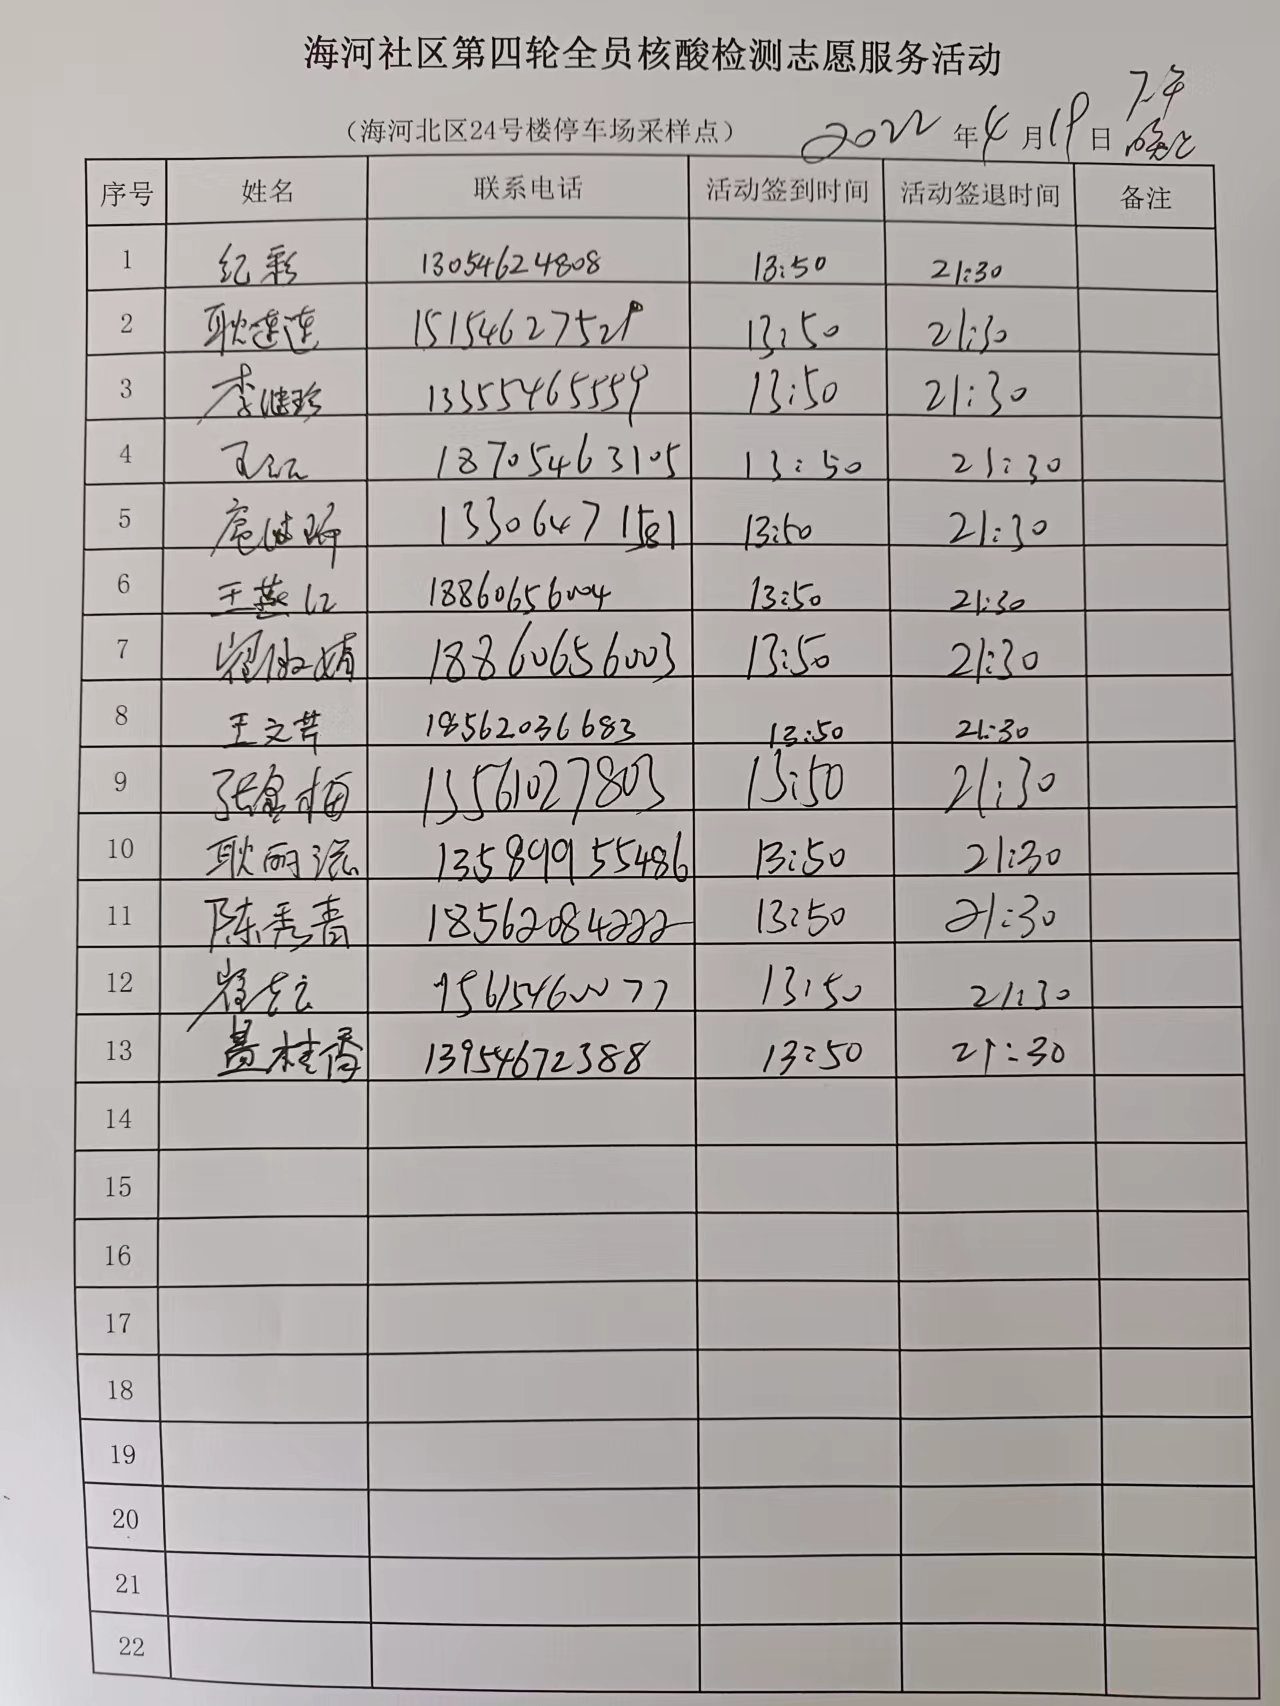 海河社区第四轮全员核酸检测志愿服务活动
(海河北区24号楼停车场采样点) 2022年4月19日 下午
序号 姓名 联系电话 活动签到时间 活动签退时间 备注
1 纪彩 13054624808 13:50 21:30
2 耿莲莲 15154627529 13:50 21:30
3 李继珍 13355465559 13:50 21:30
4 王红 18705463105 13:50 21:30
5 13306471581 13:50 21:30
6 王燕江 18860656004 13:50 21:30
7 18860656003 13:50 21:30
8 王文芹 18562036683 13:50 21:30
9 张金梅 13561027803 13:50 21:30
10 耿丽滋 13589955486 13:50 21:30
11 陈秀青 18562084222 13:50 21:30
12 15615460077 13:50 21:30
13 13954672388 13:50 21:30
14
15
16
17
18
19
20
21
22